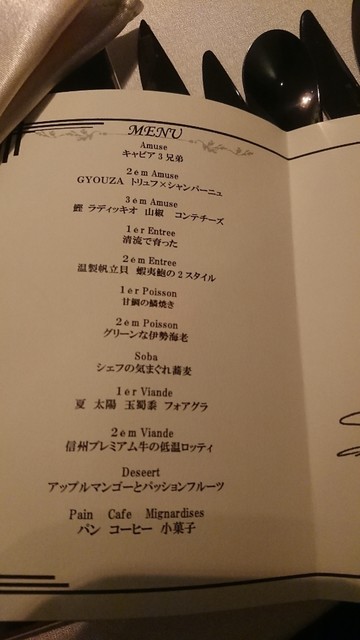 MENU
Amuse
キャビア3兄弟
2ém Amuse
GYOUZA トリュフ×シャンパーニュ
3ém Amuse
鰹 ラディッキオ 山椒 コンテチーズ
1ér Entree
清流で育った
2ém Entree
温製帆立貝 蝦夷鮑の2スタイル
1ér Poisson
甘鯛の鱗焼き
2ém Poisson
グリーンな伊勢海老
Soba
シェフの気まぐれ蕎麦
1ér Viande
夏 太陽 玉蜀黍 フォアグラ
2ém Viande
信州プレミアム牛の低温ロッティ
Deseert
アップルマンゴーとパッションフルーツ
Pain Cafe Mignardises
パン コーヒー 小菓子